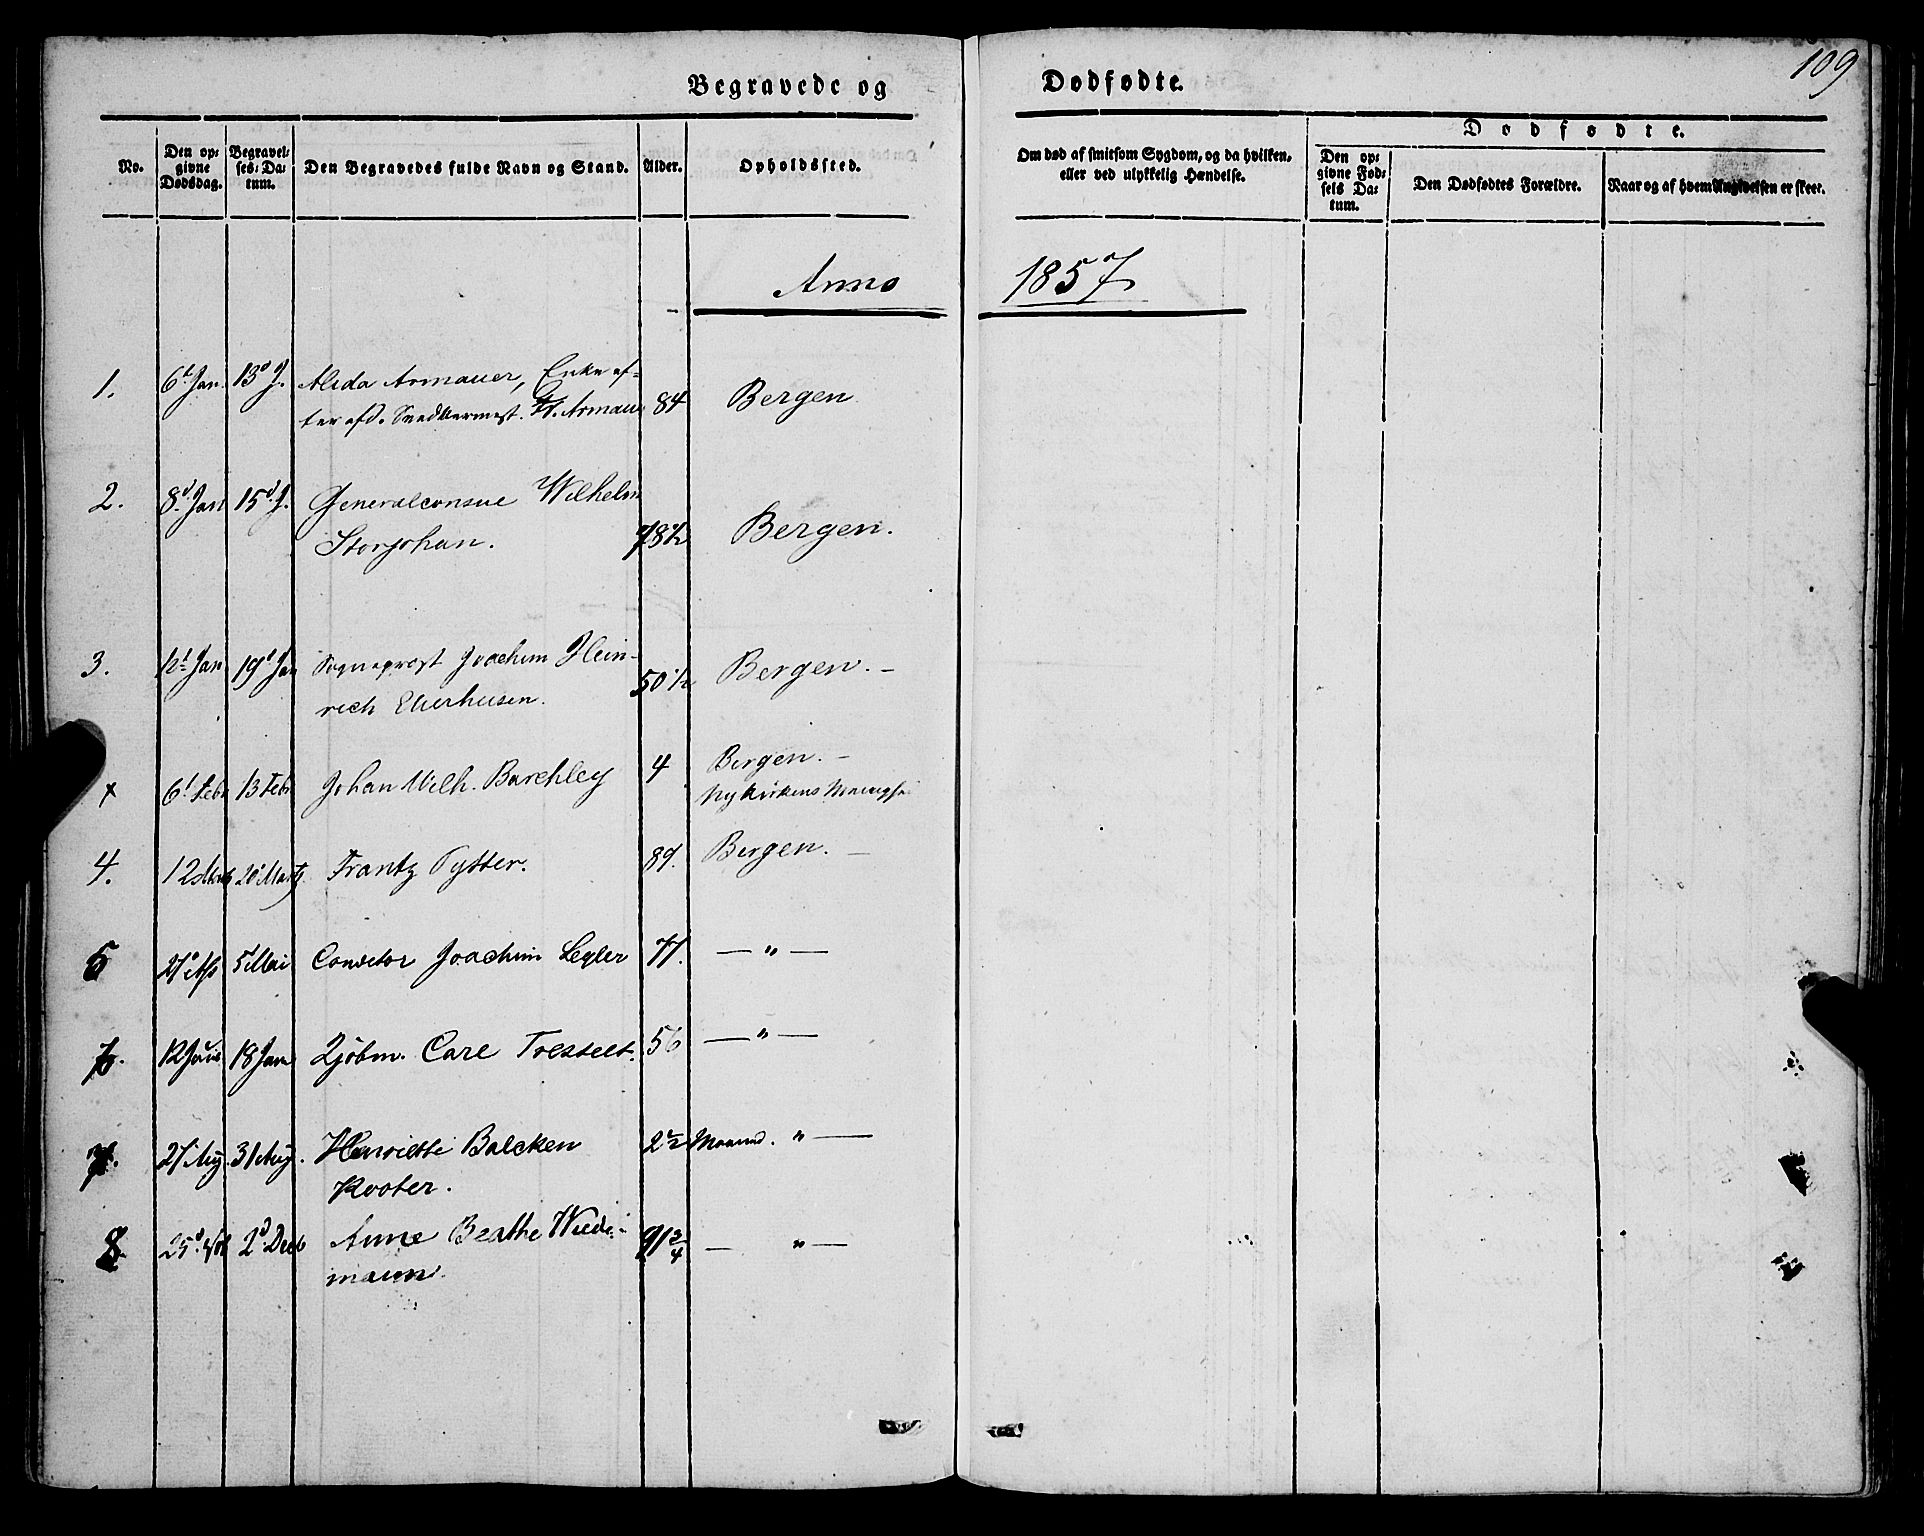 109
Begravede og Dødfødte.
No.
Den opgivne Dødsdag.
Begravelses-Datum.
Den Begravedes fulde Navn og Stand.
Alder.
Opholdssted.
Om død af smitsom Sygdom, og da hvilken, eller ved ulykkelig Hændelse.
Dødfødte.
Den opgivne Fødsels Datum.
Den Dødfødtes Forældre.
Naar og af hvem Angivelsen er skeet.
Anno 1857
1. 6t Jan. 13d J. Alida Armauer, Enke af- 84 Bergen
ter afd. Snedkermest. Armauer
2. 8d Jan 15d J. Generalconsul Wilhelm
Storjohan. 78½ Bergen.
3. 12t Jan 19d Jan Sogneprest Joachim Hein- Bergen. –
rich Ellerhusen. 50½
x 6t Febr 13 Febr Johan Wilh. Barchley 4 Bergen. –
Nykirkens Menighed
4. 12 Martz 20 Martz Frantz Pytter. 89. Bergen. –
5 27d Ap 5 Mai Conditor Joachim Legler 77. – " –
6. 12 Juni 18 Juni Kjøbm. Carl Tresselt. 56 – " –
7. 27 Aug. 31 Aug. Henriette Balcken 2½ Maaned. " –
Krohter.
8 25d 2d Decb Anne Beathe Wiede- 91¾ – " –
mann.